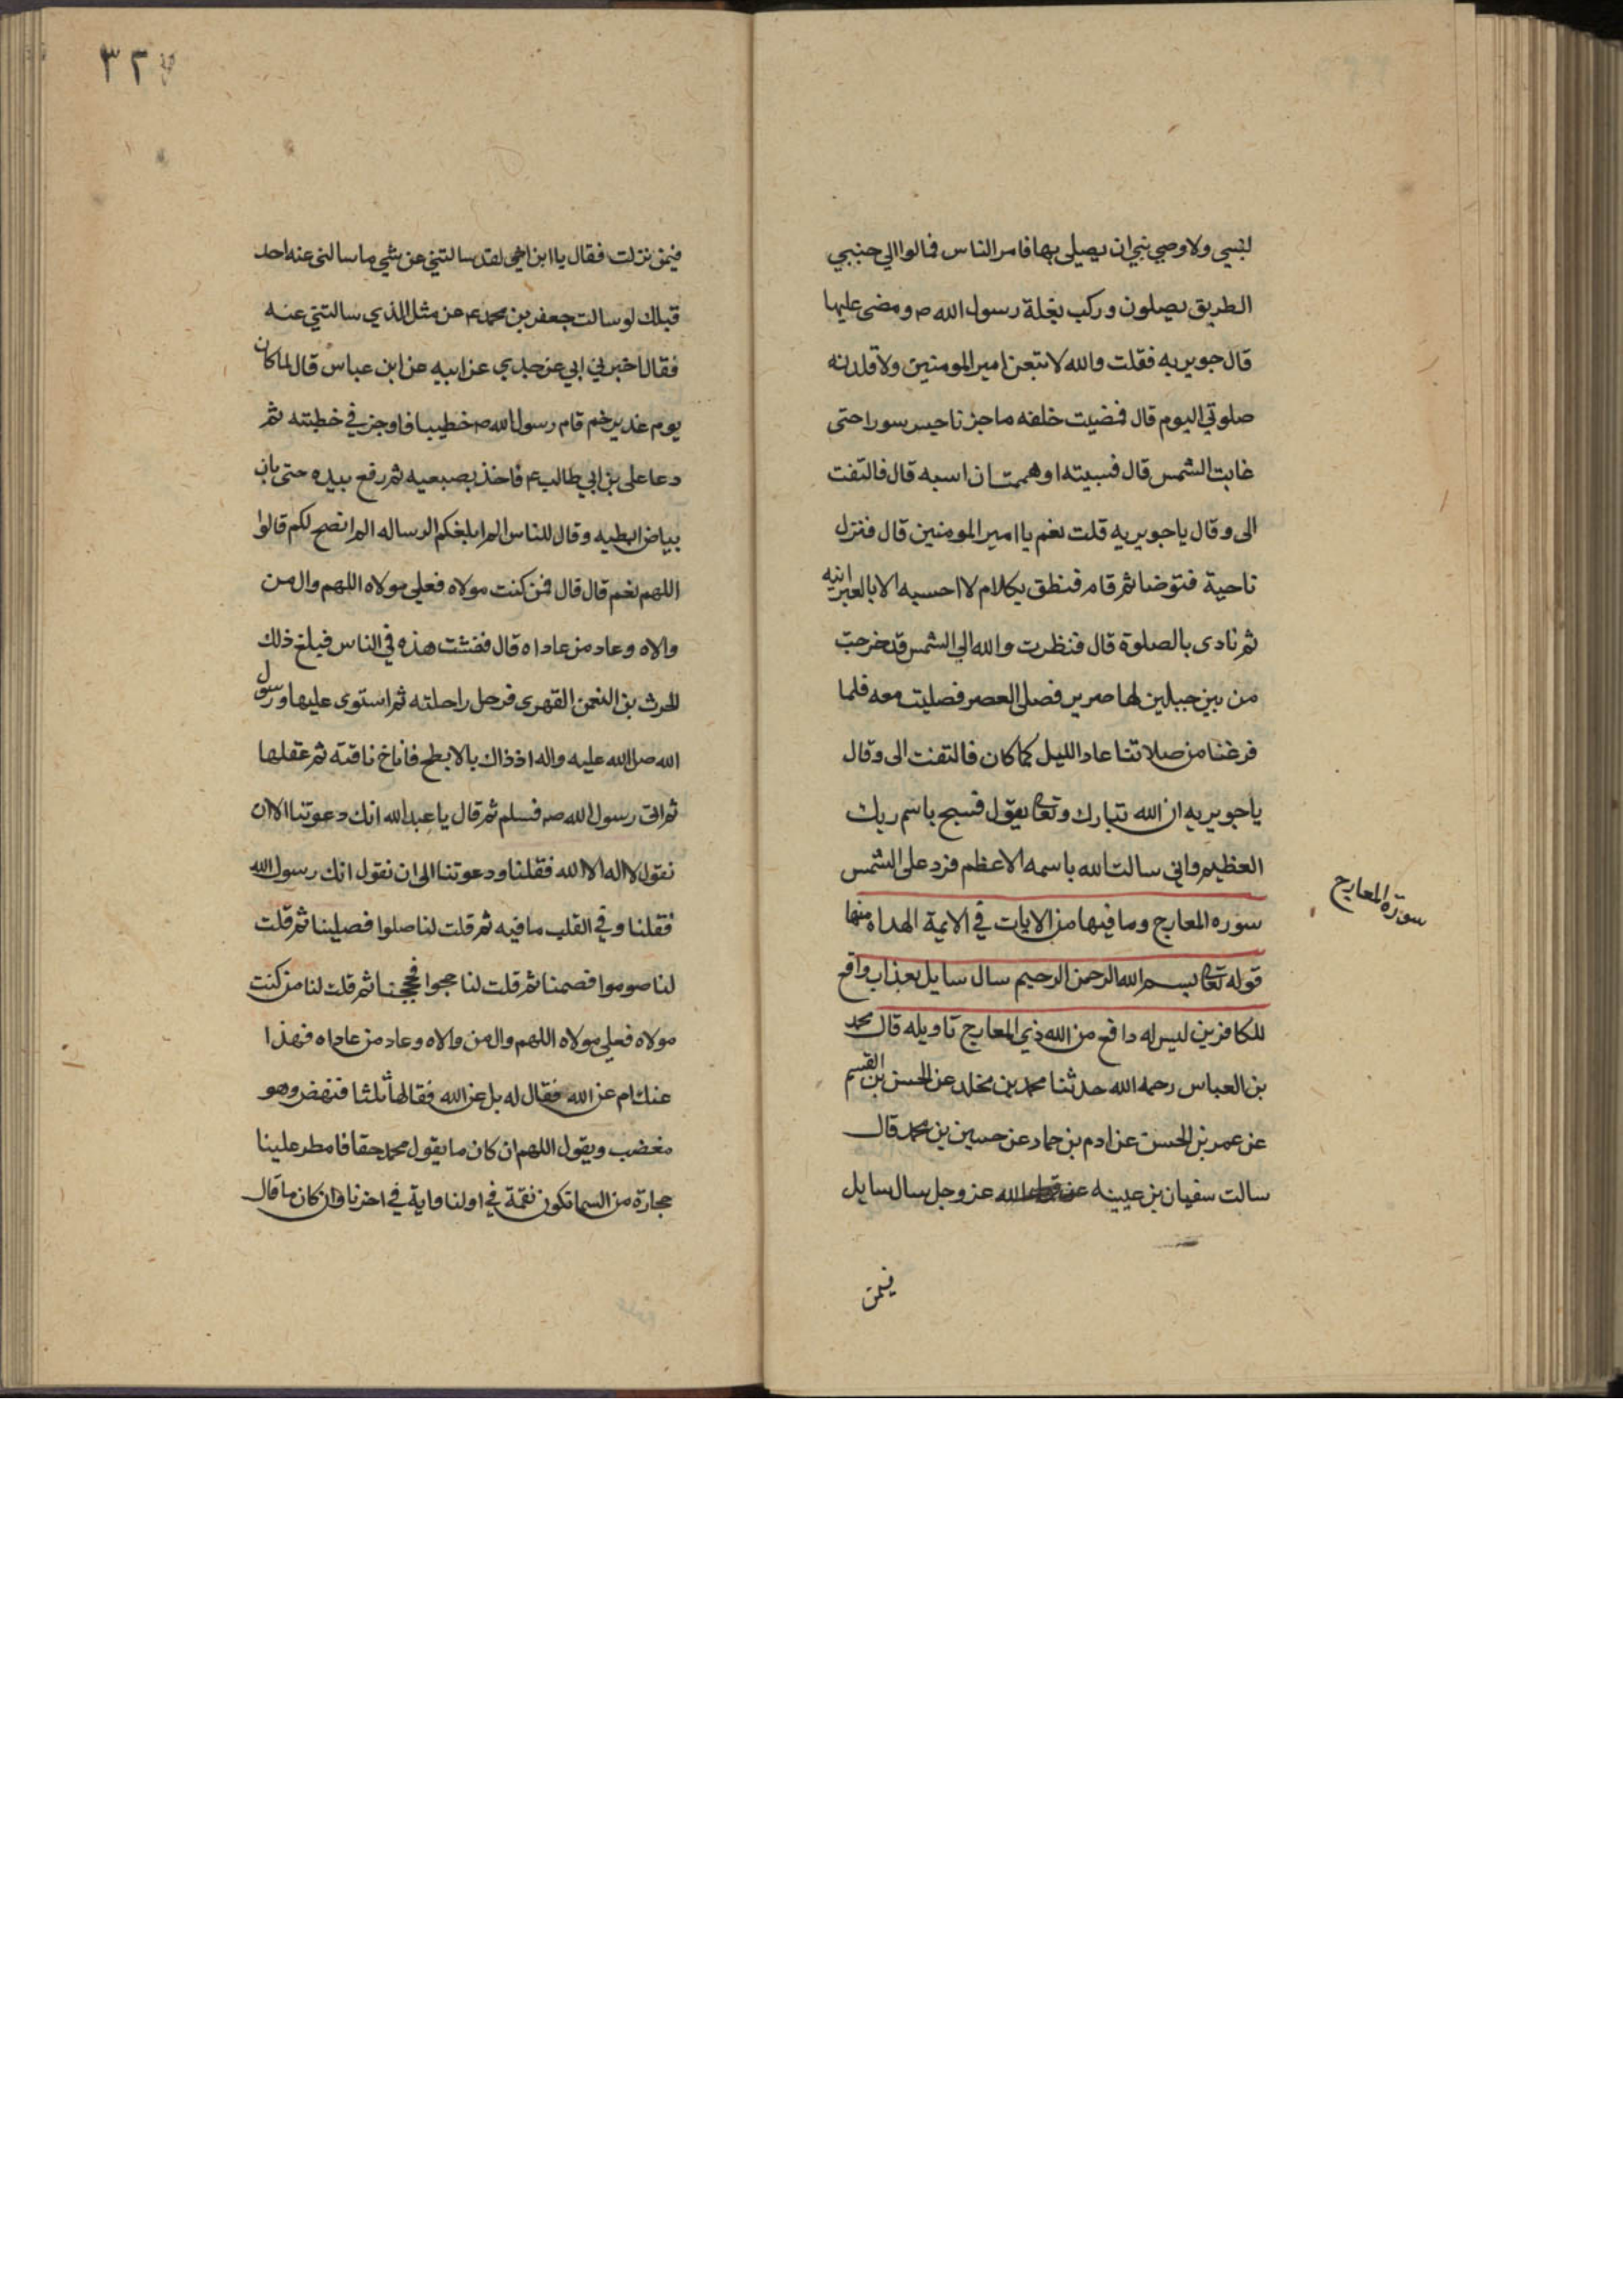 لنبي ولا وصي نبي ان يصلي بها فامر الناس فمالوا الي جنبي
الطريق يصلون وركب بغلة رسول الله ص ومضى عليها
قال جويريه فقلت والله لاتبعن امير المومنين ولاقلدنه
صلوتي اليوم قال فمضيت خلفه ما جزنا جسر سورا حتى
غابت الشمس قال فسببته او هممت ان اسبه قال فالتفت
الى وقال يا جويريه قلت نعم يا امير المومنين قال فنزل
ناحية فتوضا ثم قام فنطق بكلام لا احسبه الا بالعبرانيه
ثم نادى بالصلوة قال فنظرت والله الي الشمس قد خرجت
من بين جبلين لها صرير فصلى العصر فصليت معه فلما
فرغنا من صلاتنا عاد الليل كما كان فالتفت الى وقال
يا جويريه ان الله تبارك وتعا يقول فسبح باسم ربك
العظيم واني سالت الله باسمه الاعظم فرد على الشمس
سورة المعارج
سوره المعارج وما فيها من الايات في الايمة الهداه منها
قوله تعا بسم الله الرحمن الرحيم سال سايل بعذاب واقع
للكافرين ليس له دافع من الله ذي المعارج تاويله قال محمد
بن العباس رحمه الله حدثنا محمد بن مخلد عن الحسن بن القسم
عن عمر بن الحسن عن ادم بن حماد عن حسين بن محمد قال
سالت سفيان بن عيينه عن قول الله عز وجل سال سايل
فيمن
٣٢٧
فيمن نزلت فقال يا ابن اخي لقد سالتني عن شي ما سالني عنه احد
قبلك لو سالت جعفر بن محمد ع عن مثل الذي سالتني عنه
فقال اخبرني ابي عن جدي عن ابيه عن ابن عباس قال لما كان
يوم غدير خم قام رسول الله ص خطيبا فاوجز في خطبته ثم
دعا على بن ابي طالب ع فاخذ بصبعيه ثم رفع بيده حتى بان
بياض ابطيه وقال للناس الم ابلغكم الرساله الم انصح لكم قالوا
اللهم نعم قال قال فمن كنت مولاه فعلي مولاه اللهم وال من
والاه وعاد من عاداه قال ففشت هذه في الناس فبلغ ذلك
الحرث بن النعمن الفهري فرحل راحلته ثم استوى عليها ورسول
الله صلى الله عليه واله اذ ذاك بالابطح فاناخ ناقته ثم عقلها
ثم اتى رسول الله ص فسلم ثم قال يا عبد الله انك دعوتنا الا ان
نقول لا اله الا الله فقلنا ودعوتنا الى ان نقول انك رسول الله
فقلنا وفي القلب ما فيه ثم قلت لنا صلوا فصلينا ثم قلت
لنا صوموا فصمنا ثم قلت لنا حجوا فحججنا ثم قلت لنا من كنت
مولاه فعلي مولاه اللهم وال من والاه وعاد من عاداه فهذا
عنك ام عن الله فقال له بل عن الله فقالها ثلثا فنهض وهو
مغضب ويقول اللهم ان كان ما يقول محمد حقا فامطر علينا
حجارة من السما تكون نقمة في اولنا واية في اخرنا وان كان ما قال